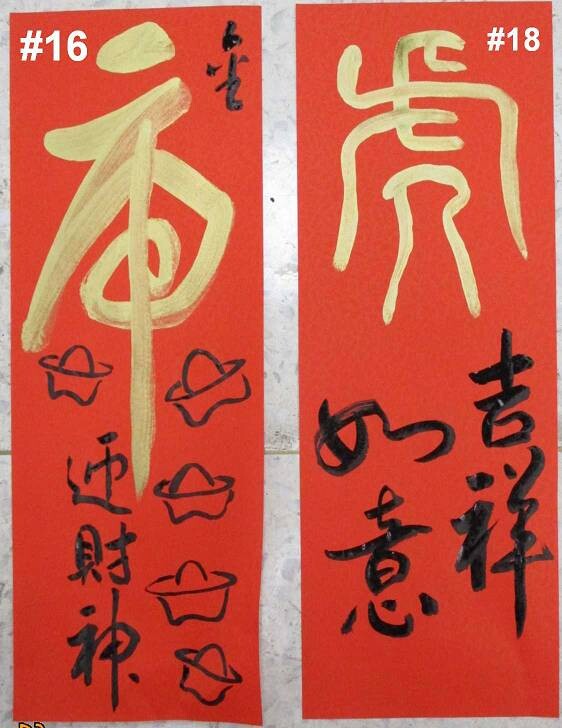 #16
虎
迎財神
#18
虎
吉祥
如意